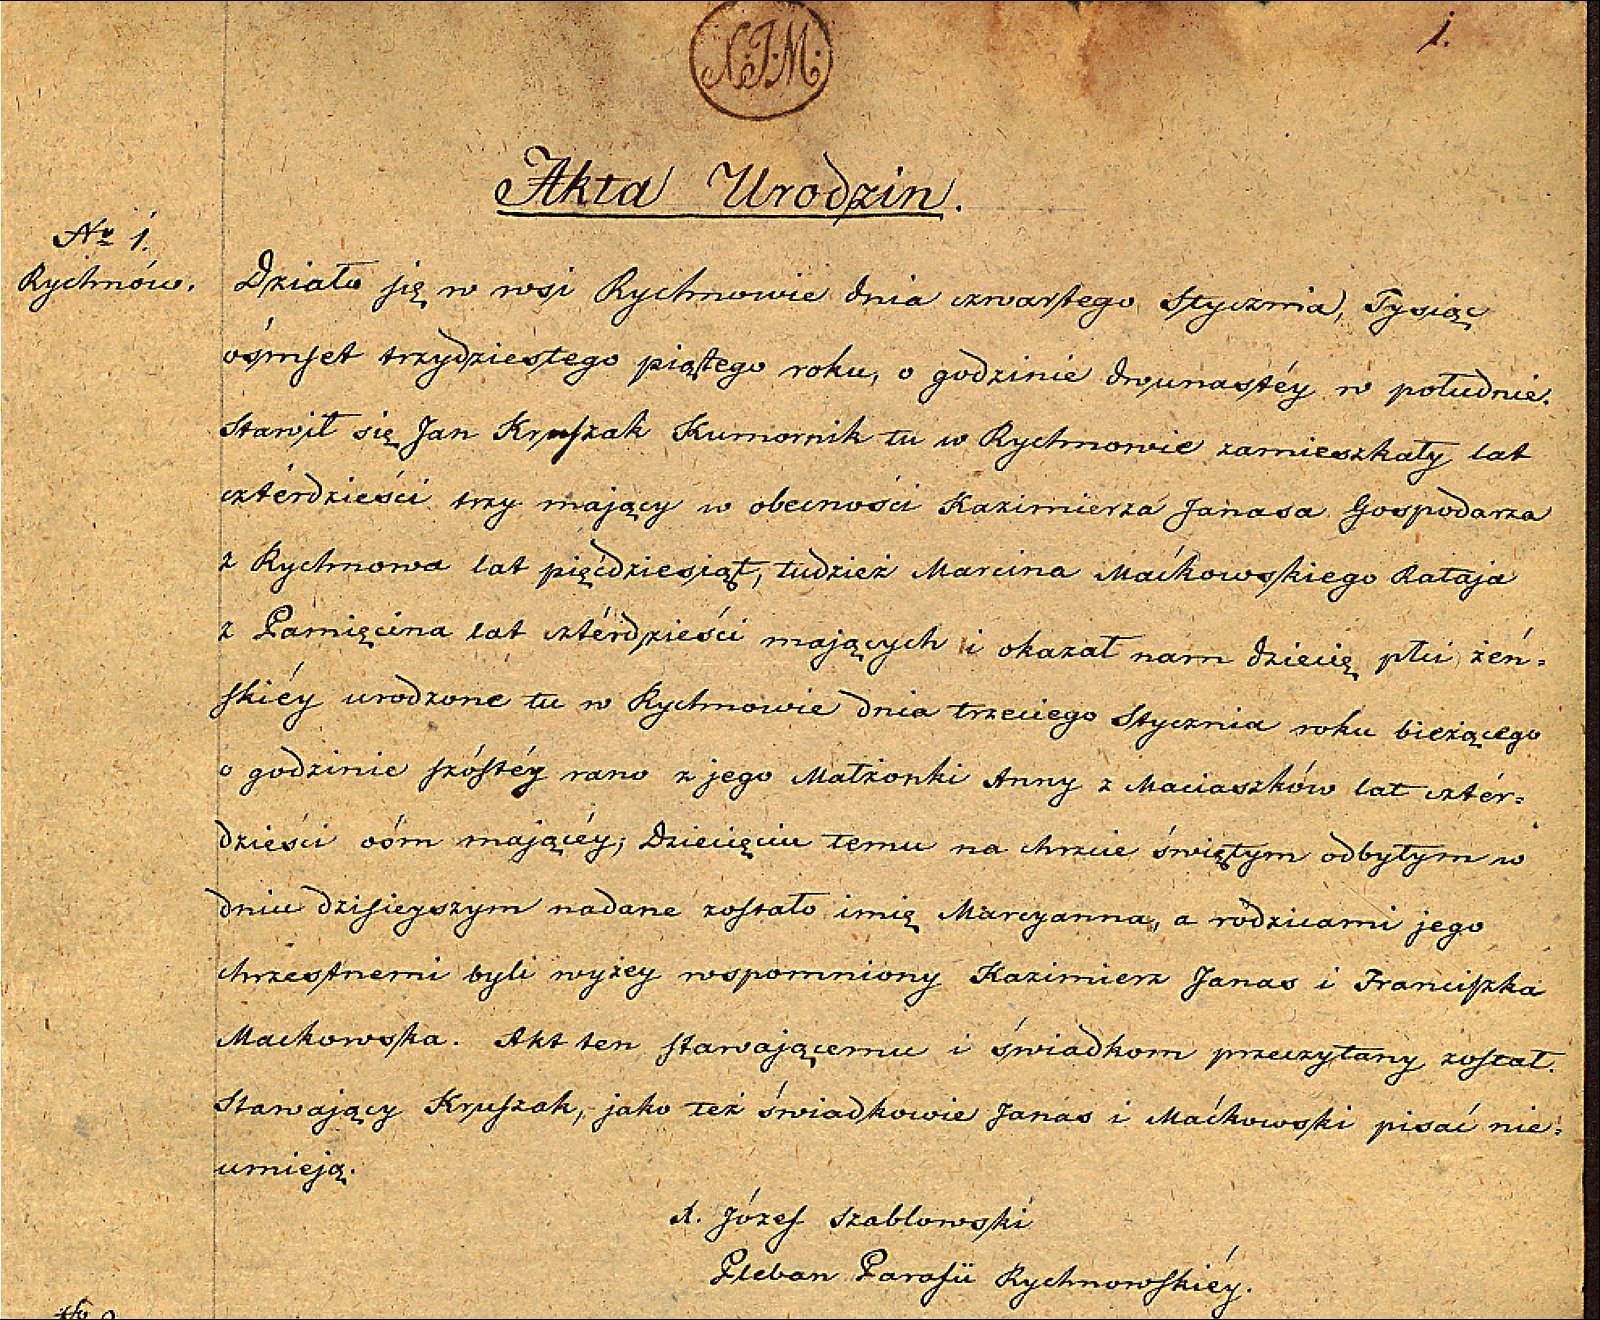 N.J.M.
1.
Akta Urodzin.
Nro 1.
Rychnów.
Działo się w wsi Rychnowie dnia czwartego Stycznia, Tysiąc
óśmset trzydziestego piątego roku, o godzinie dwunastéy w południe.
Stawił się Jan Kruszak Kumornik tu w Rychnowie zamieszkały lat
cztérdzieści trzy mający w obecności Kazimierza Janasa Gospodarza
z Rychnowa lat pięćdziesiąt, tudzież Marcina Maćkowskiego Rataja
z Pamięcina lat cztérdzieści mających i okazał nam dziecię płci żeń=
skiéy urodzone tu w Rychnowie dnia trzeciego Stycznia roku bieżącego
o godzinie szóstéy rano z jego Małżonki Anny z Maciaszków lat cztér=
dzieści ośm mającéy; Dziecięciu temu na chrzcie świętym odbytym w
dniu dzisieyszym nadane zostało imię Marcyanna, a rodzicami jego
chrzestnemi byli wyżey wspomniony Kazimierz Janas i Franciszka
Mackowska. Akt ten stawającemu i świadkom przeczytany został.
Stawający Kruszak, jako też świadkowie Janas i Maćkowski pisać nie=
umieją.
X. Józef Szablowski
Pleban Parafii Rychnowskiéy.